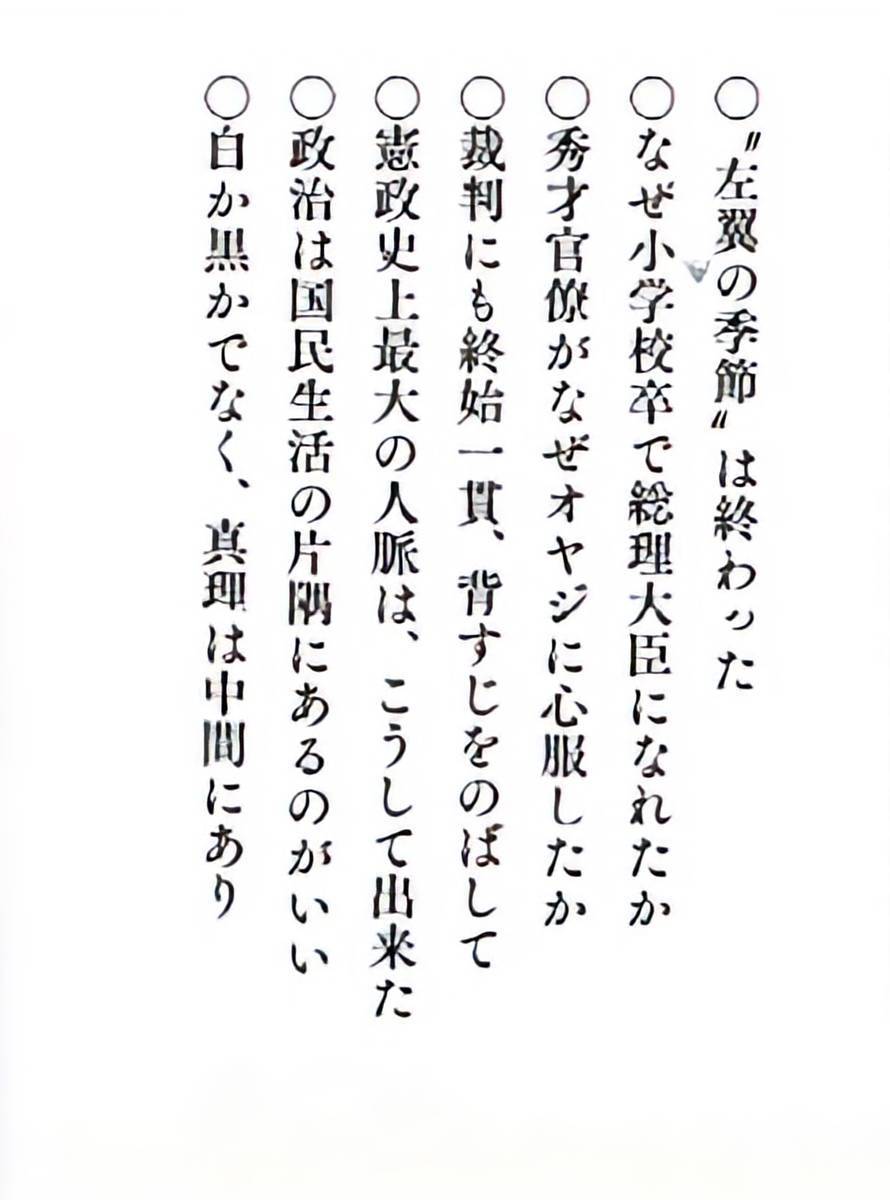 ○〝左翼の季節〟は終わった
○なぜ小学校卒で総理大臣になれたか
○秀才官僚がなぜオヤジに心服したか
○裁判にも終始一貫、背すじをのばして
○憲政史上最大の人脈は、こうして出来た
○政治は国民生活の片隅にあるのがいい
○白か黒かでなく、真理は中間にあり